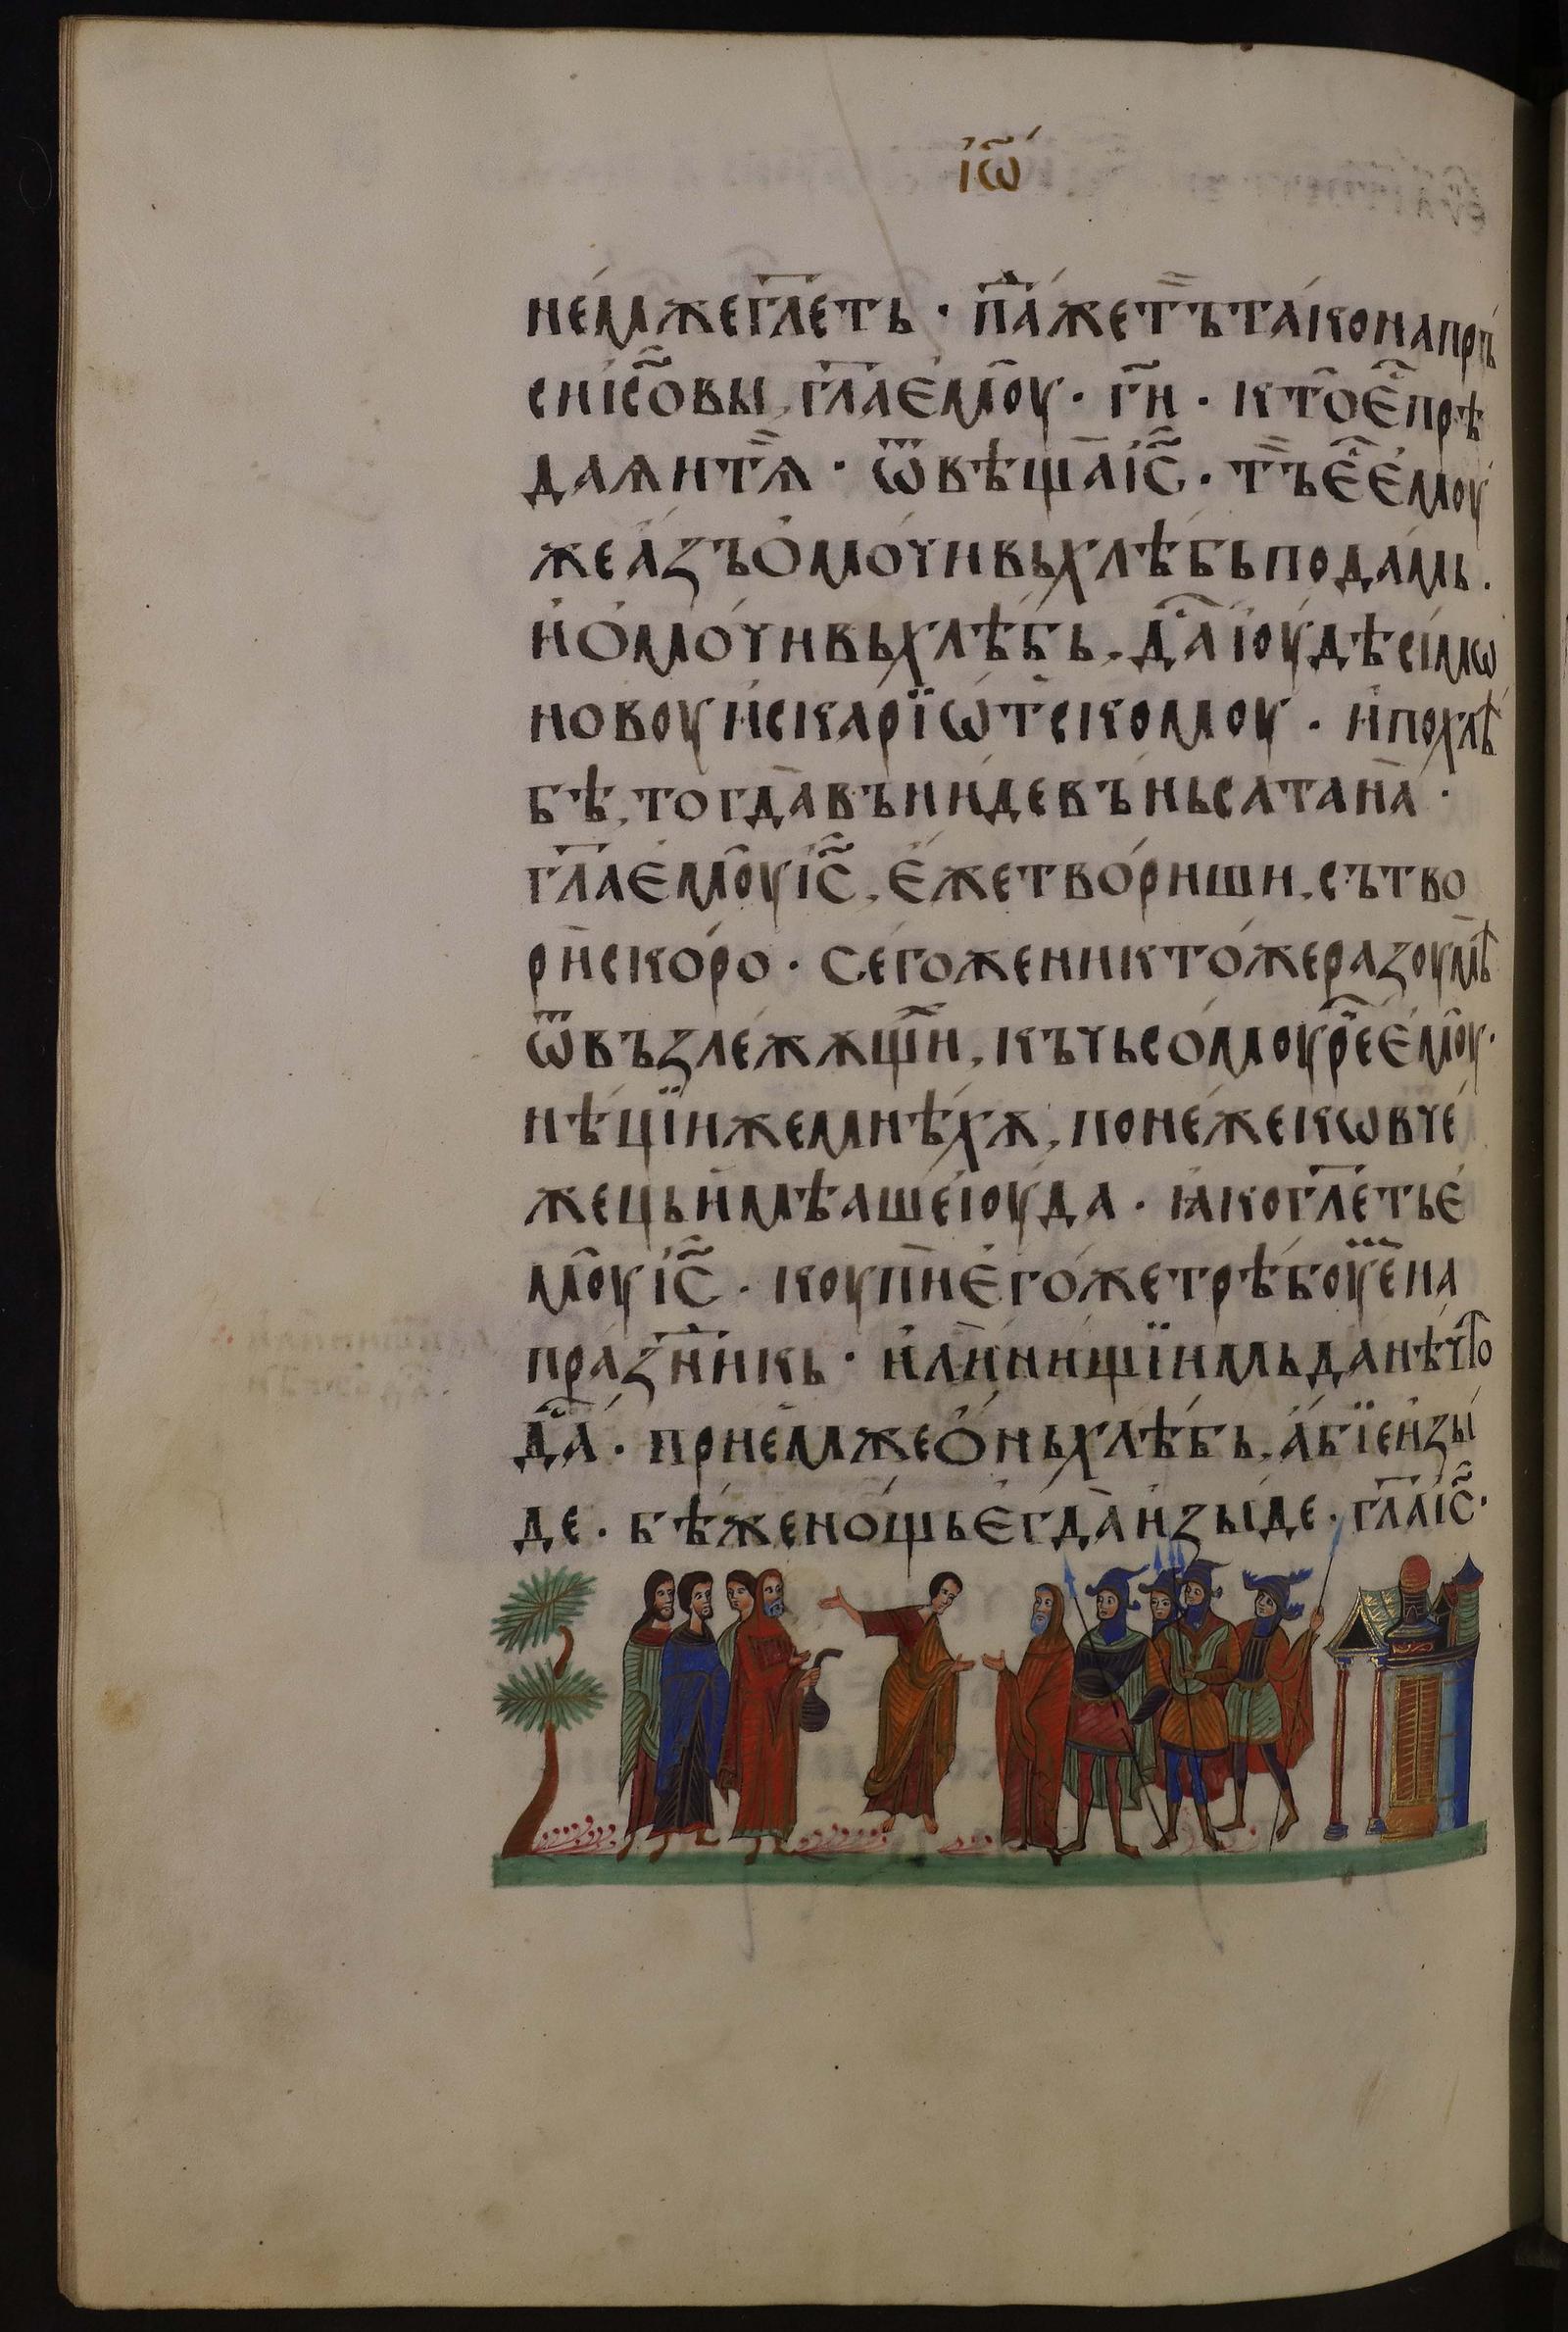 і҆ѡ҃
не́мже гл҃еть · па́ⷣ же т҆ъ та́ко на прь
си і҆с҃ѡвы, гл҃а є҆моу · гн҃ · кто̀ є҆ⷭ҇ прѣ
даѧи тѧ̀ · ѿвѣща̀ і҆с҃ · т҆ъ є҆ⷭ҇ є҆моу
же а҆зъ ѡ҆мо́чивь хлѣ́бь пода́мь .
и҆ ѡ҆мо́чивь хлѣ́бь, да́ⷭ і҆ѹ́дѣ сі́мѡ
новоу и҆скарїѡ́тскомоу · и҆ по хлѣ́
бѣ, тогда̀ въни́де въ́ нь сатана̀ ·
гл҃а є҆моу̀ і҆с҃, є҆́же твори́ши, сътво
рѝ ско́ро · сего́ же никто́же разоумѣ́
ѿ възлежѧщи́ⷯ, къ чьсо́моу ре́ⷱ є҆моу̀ ·
нѣ́цїи же мнѣ́хѫ, поне́же ковче́
жець и҆мѣ́аше і҆ѹ́да · ꙗ҆ко гл҃еть є҆
моу̀ і҆с҃ · коупѝ є҆го́же трѣ́боуе́ⷨ на
пра́зⷣникь · и҆лѝ ни́щїимь да нѣ́что
да́ⷭ · прие́мже ѻ҆́нь хлѣ́бь, а҆́бїе и҆зы́
де · бѣ́ же но́щь є҆гда̀ и҆зы́де · гл҃а і҆с҃ ·